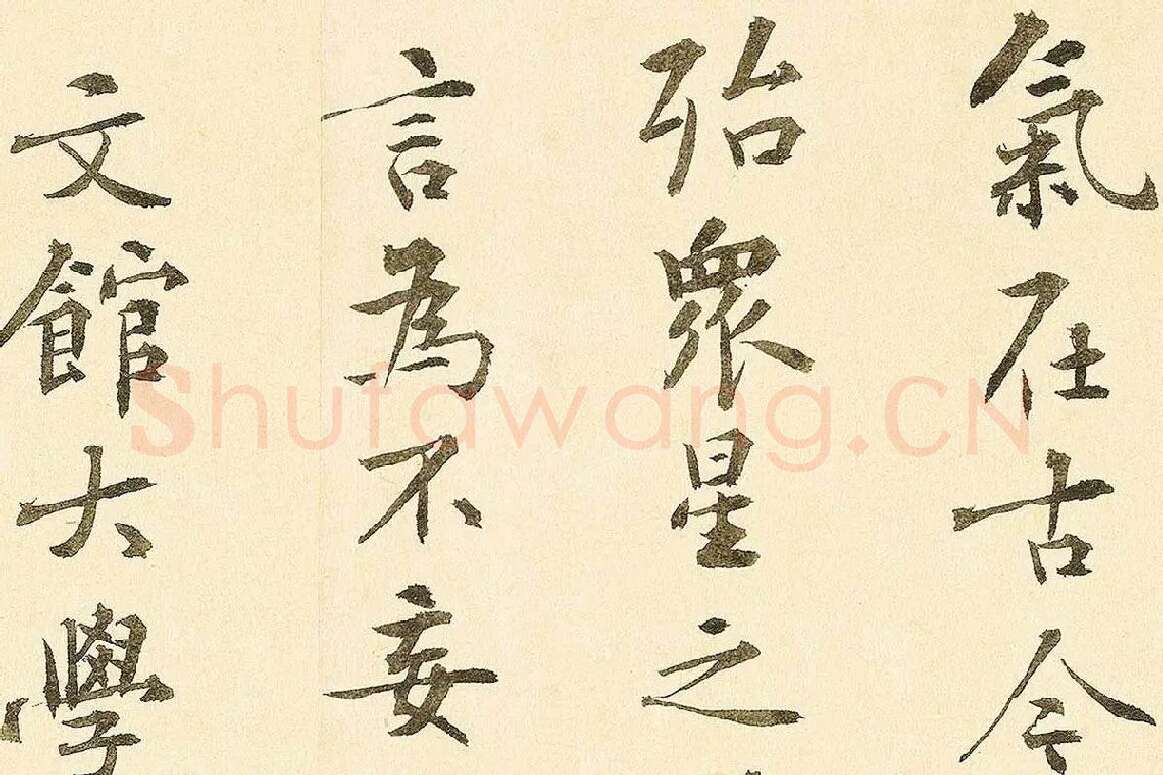 氣在古今
殆眾星之
言為不妄
文館大學
Shufawang.CN